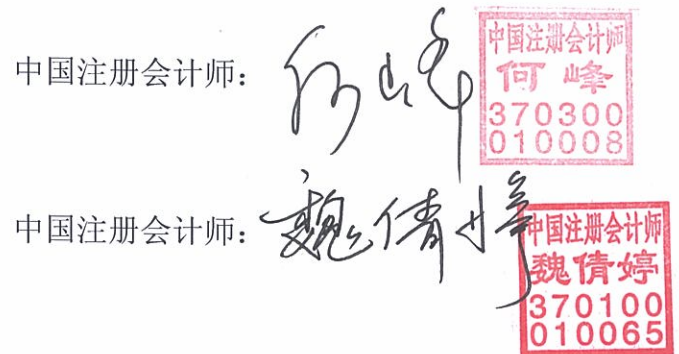 中国注册会计师：何峰
中国注册会计师
何 峰
370300
010008
中国注册会计师：魏倩婷
中国注册会计师
魏倩婷
370100
010065